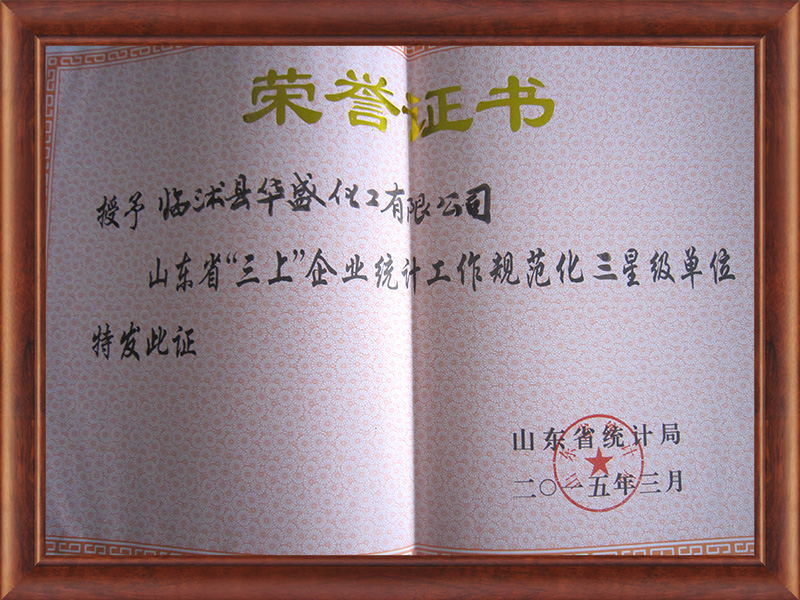 荣誉证书
授予 临沭县华盛化工有限公司
山东省“三上”企业统计工作规范化三星级单位
特发此证
山东省统计局
二〇一五年三月